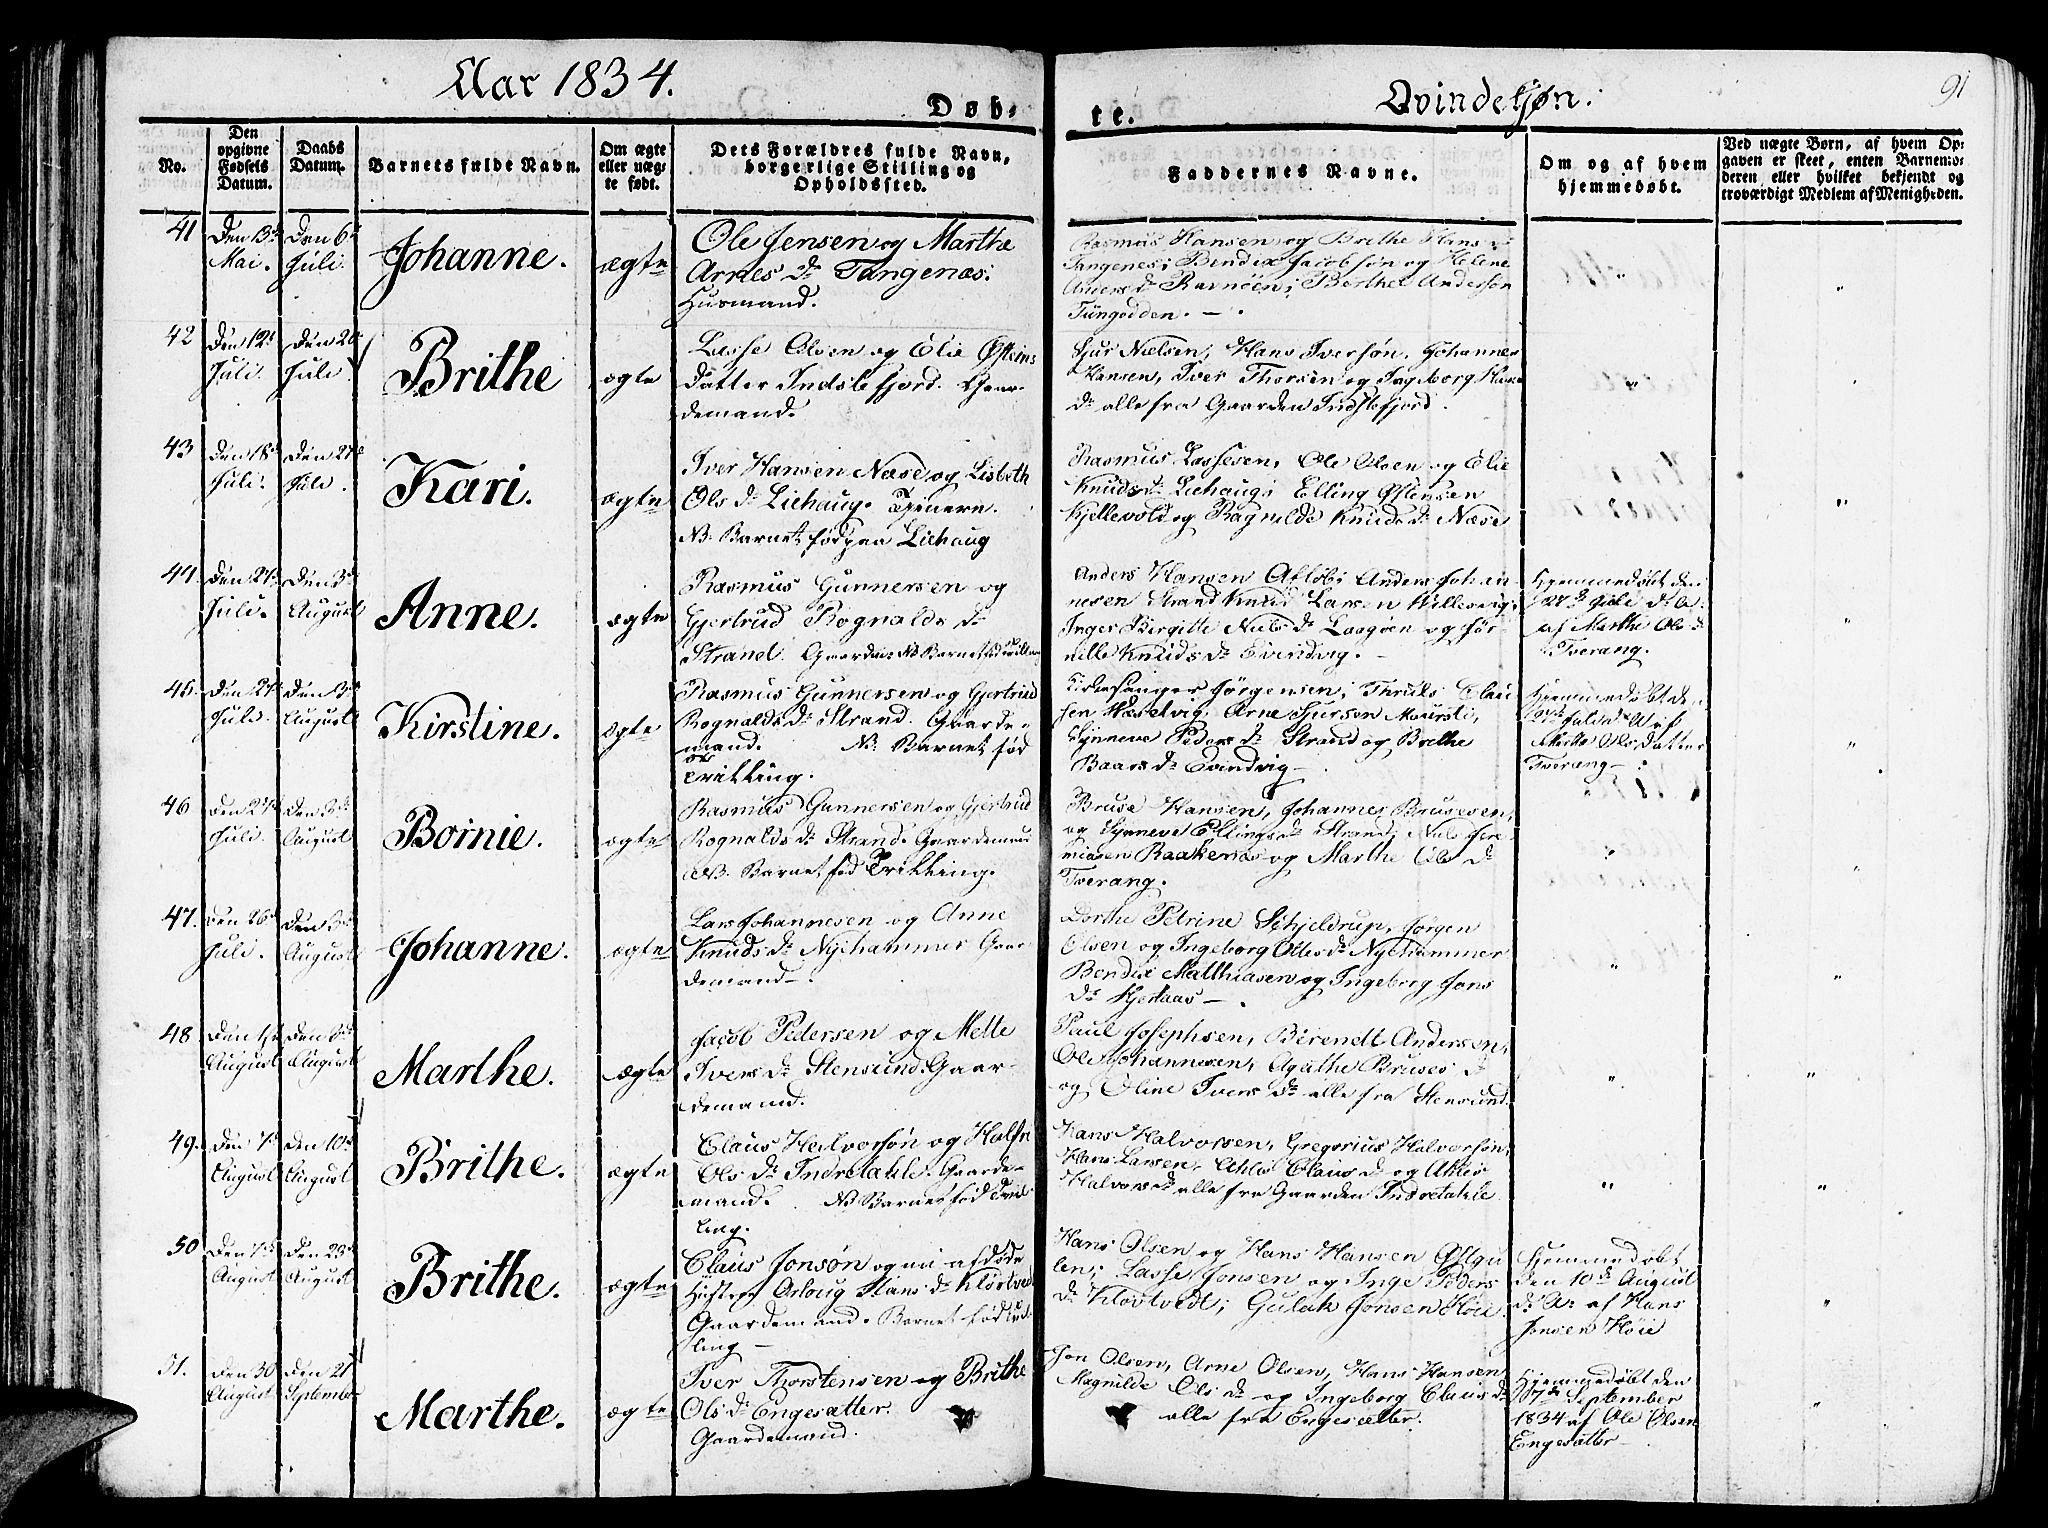 Aar 1834.
Døb-
te.
Qvindekjøn.
91
No.
Den
opgivne
Fødsels
Datum.
Daabs
Datum.
Barnets fulde Navn.
Om ægte
eller uæg-
te født.
Dets Forældres fulde Navn,
borgerlige Stilling og
Opholdssted.
Faddernes Navne.
Om og af hvem
hjemmedøbt.
Ved uægte Børn, af hvem Op-
gaven er skeet, enten Barnemo-
deren eller hvilket bekjendt og
troværdigt Medlem af Menigheden.
41
Den 13de
Mai.
Den 6te
Juli.
Johanne.
ægte
Ole Jensen og Marthe
Arnes Dr Tangenæs.
Husmand.
Rasmus Hansen og Brithe Hans Dr
Tangenes; Bendix Jacobsøn og Helene
Anders Dr Ravnöen; Berthel Andersøn
Tungodden.
42
Den 12te
Juli.
Den 20
Juli
Brithe
ægte
Lasse Olsen og Elie Østens
Datter Indslefjord. Gaar-
demand.
Sjur Nielsen, Hans Iversøn, Johannes
Hansen, Iver Thorsen og Ingeborg Hans
Dr alle fra Gaarden Indslefjord.
43
Den 18de
Juli.
Den 27de
Juli.
Kari.
ægte
Iver Hansen Næse og Lisbeth
Ols Dr Liehaug. Tjenere.
NB. Barnet født paa Liehaug
Rasmus Lassesen, Ole Olsen og Elie
Knuds Dr Liehaug; Elling Østensen
Kjellevold og Ragnilde Knuds Dr Næse
44.
Den 27de
Juli.
Den 3de
August
Anne.
ægte
Rasmus Gunnersen og
Gjertrud Rognalds Dr
Strand. Gaardm. NB Barnet født Trilling
Anders Hansen Afløb; Anders Johan-
nesen Strand Knud Larsen Hillesvig;
Inger Birgitte Niels Dr Laagøen og Per-
nille Knuds Dr Evindvig.
Hjemmedøbt den
27de Juli d. A.
af Marthe Ols Dr
Tverang.
45.
Den 27de
Juli.
Den 3de
August
Kirstine.
ægte
Rasmus Gunnersen og Gjertrud
Rognalds Dr Strand. Gaarde-
mand. NB. Barnet fød
Trilling.
Kirkesanger Jørgensen; Thruls Clau-
sen Hæselvig, Arne Sjursen
Synneve Peders Dr Strand og Brithe
Baars Dr Evindvig
Hjemmedøbt den
27de Juli d. A. af
Marthe Ols Datter
Tverang.
46
Den 27de
Juli.
Den 3de
August
Bornie.
ægte
Rasmus Gunnersen og Gjertrud
Rognalds Dr Strand. Gaardemand
NB. Barnet fød Trilling.
Bruse Hansen, Johannes Brusesen,
og Synneve Ellings Dr Strand; Niels Jere-
miasen Raakenæs og Marthe Ols Dr
Tverang.
47.
Den 26de
Juli.
Den 3de
August
Johanne.
ægte
Lars Johannesen og Anne
Knuds Dr Nyehammer Gaar-
demand.
Dorthe Petrine Schjeldrup, Jørgen
Olsen og Ingeborg Oles Dr Nyehammer
Bendix Matthiasen og Ingeborg Jons
Dr
48
Den 1ste
August
Den 3de
August
Marthe.
ægte
Jacob Pedersen og Mette
Ivers Dr Stensund. Gaar-
demand.
Paul Josephsen, Berendt Andersen,
Ole Johannesen, Agathe Bruses Dr
og Oline Ivers Dr alle fra Stensund.
49.
Den 7de
August
Den 10de
August
Brithe.
ægte
Claus Halvorsøn og
Ols Dr Indretakle. Gaarde-
mand. NB Barnet fød Tvil-
ling.
Hans Halvorsen, Gregorius Halvorsøn,
Hans Larsen, Ahlis Claus Dr og Ahlis
Halvors Dr alle fra Gaarden Indretakle
50
Den 7de
August
Den 23de
August
Brithe.
ægte
Claus Jonsøn og nu afdøde
Hustru Aslaug Hans Dr Kløvtvedt
Gaardemand. Barnet fød Tvil-
ling
Hans Olsen og Hans Hansen Østgu-
len; Lasse Jonsen og Inge Peders
Dr Kløvtvedt; Gulak Jonsen Høie
Hjemmedøbt
den 10de August
d. A. af Hans
Jonsen Høie
51.
Den 30
August
Den 21
September
Marthe.
ægte
Iver Thorstensen og Brithe
Ols Dr Engesætter.
Gaardemand.
Jon Olsen, Arne Olsen, Hans Hansen
Magnilde Ols Dr og Ingeborg Claus Dr
alle fra Engesætter.
Hjemmedøbt den
7de September
1834 af Ole Olsen
Engesætter